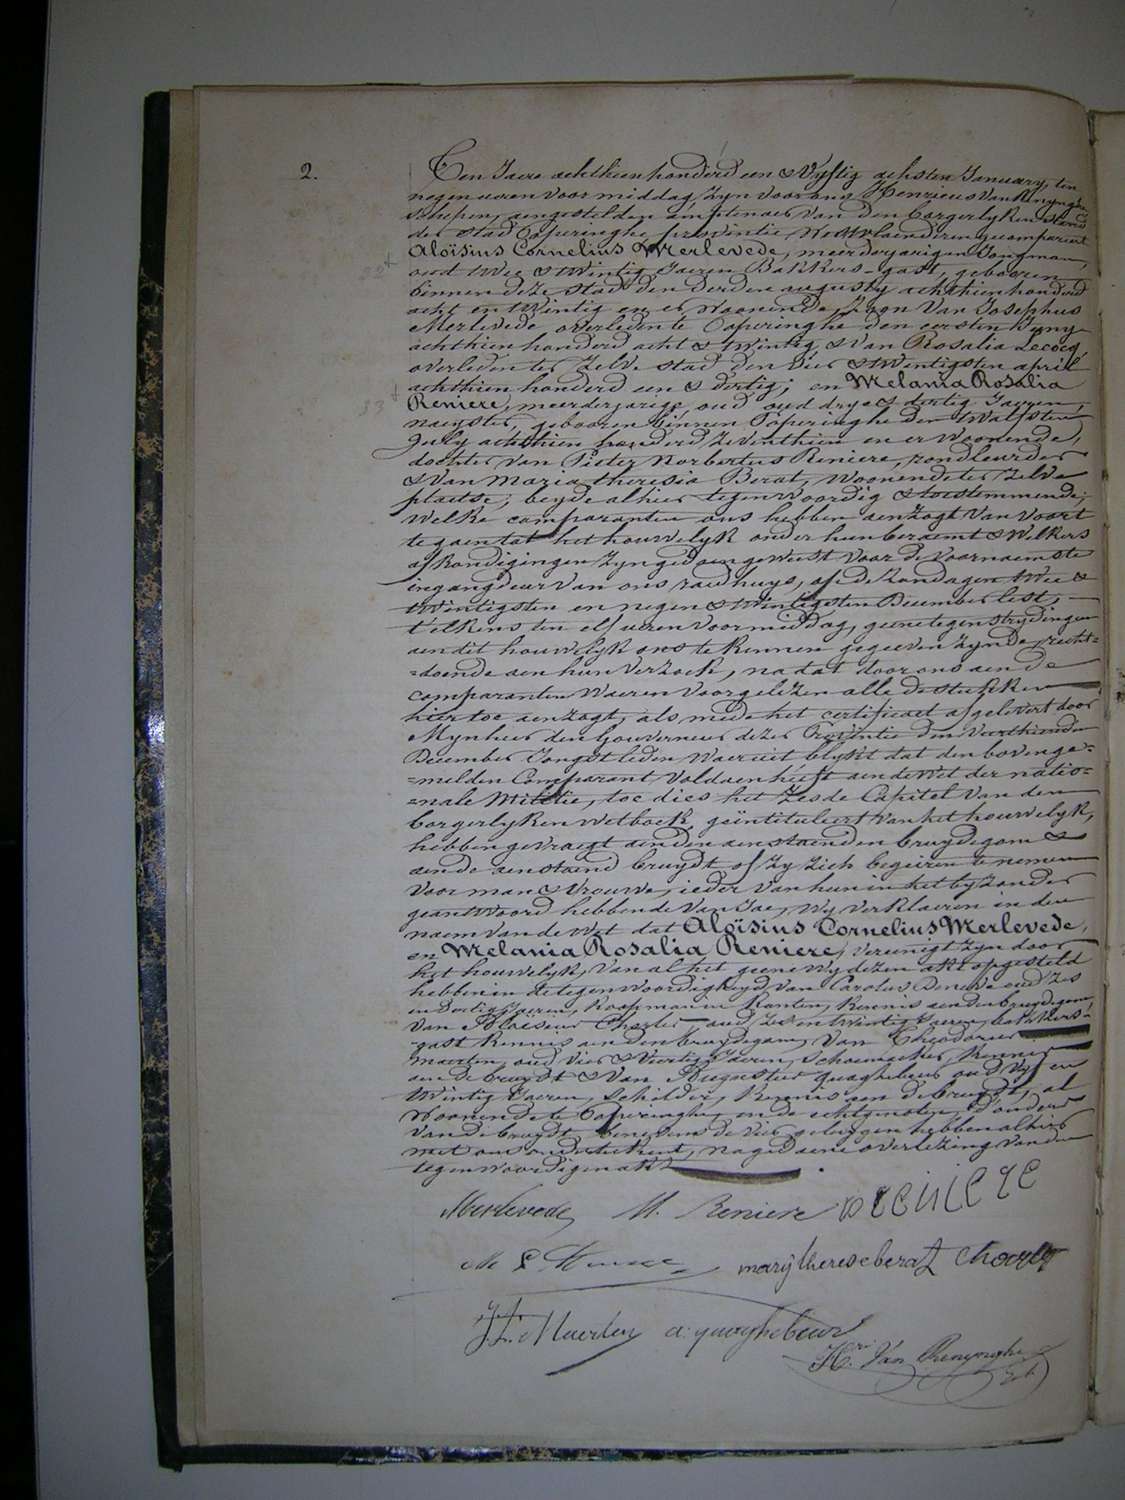 2.
Ten Jaere achthienhonderd een & Vyftig achsten January, ten
negen uren voormiddag, zyn voor ons Henricus Van Renynghe
schepen, aengestelden amptenaer van den borgerlyken stand
der stad Poperinghe, provintie Westvlaenderen gecompareert
Aloïsius Cornelius Merlevede, meerderjarigen Jongman,
22
oud twee & twintig Jaeren Bakkers-gast, gebooren
binnen deze stad den derden augusty achthienhonderd
acht en twintig en er woonende, Zoon Van Josephus
Merlevede overleden te Poperinghe den eersten Juny
achthien honderd acht & twintig, & van Rosalia Lecocq,
overleden ter zelve stad den vier & twintigsten april
achthien honderd een & dertig; en Melania Rosalia
33
Reniere, meerderjarige, oud oud drye & dertig Jaeren,
naeyster, gebooren binnen Poperinghe den twalfsten
July achthien honderd zeventhien en er woonende,
dochter van Pieter Norbertus Reniere, rondleurder
& van Maria Theresia Berat, woonende ter zelve
plaetse; beyde alhier tegenwoordig & toestemmende;
welke comparanten ons hebben aenzogt van voort
te gaen tot het houwelyk onder hun beraemt & welkers
afkondigingen zyn gedaen geweest voor de voornaemste
ingangdeur van ons raedhuys, op de zondagen twee &
twintigsten en negen & twintigsten December lest,
telkens ten elf uren voormiddag, geene tegenstrydingen
aen dit houwelyk ons te kennen gegeeven zynde, recht=
=doende aen hun verzoek, na dat door ons aen de
comparanten waeren voorgelezen alle de stukken
hier toe aenzogt, als mede het certificaet afgelevert door
Mynheer den Gouverneur dezer Provintie den veerthienden
December Jongstleden waer uit blykt dat den bovenge=
=melden Comparant voldaen heeft aen de wet der natio=
=nale Militie, toe dies het zesde Capitel van den
borgerlyken wetboek, geïntituleert van het houwelyk,
hebben gevraegt aen den aenstaenden bruydegom &
aen de aenstaend bruydt of zy zich begeeren te nemen
voor man & vrouwe, ieder van hun in het byzonder
geantwoord hebbende van Jae, wy verklaeren in den
naem van de wet dat Aloïsius Cornelius Merlevede,
en Melania Rosalia Reniere, vereenigt zyn door
het houwelyk, van al het geene wy dezen akt opgesteld
hebben in de tegenwoordigheyd van Carolus Deneve oud zes
en dertig Jaeren, koopman in kanten, kennis aen den bruydegom,
van Charlet oud zes en twintig Jaeren, bakkers-
-gast kennis aen den bruydegom, van Theodorus
Maerten, oud vier & veertig Jaeren, schoenmaker, kennis
aen de bruydt & van Augustus quaghebeur oud vyf en
twintig Jaeren, schilder, kennis aen de bruydt, al
woonende te Poperinghe, en de echtgenoten, d'ouders
van de bruydt benevens de vier getuygen hebben alhier
met ons onderteekent, na gedaene overlezing van den
tegenwoordigen akt.
Merlevede M. Reniere reniere
mary therese berat Charlet
Maerten a: quaghebeur
Hri Van Renynghe